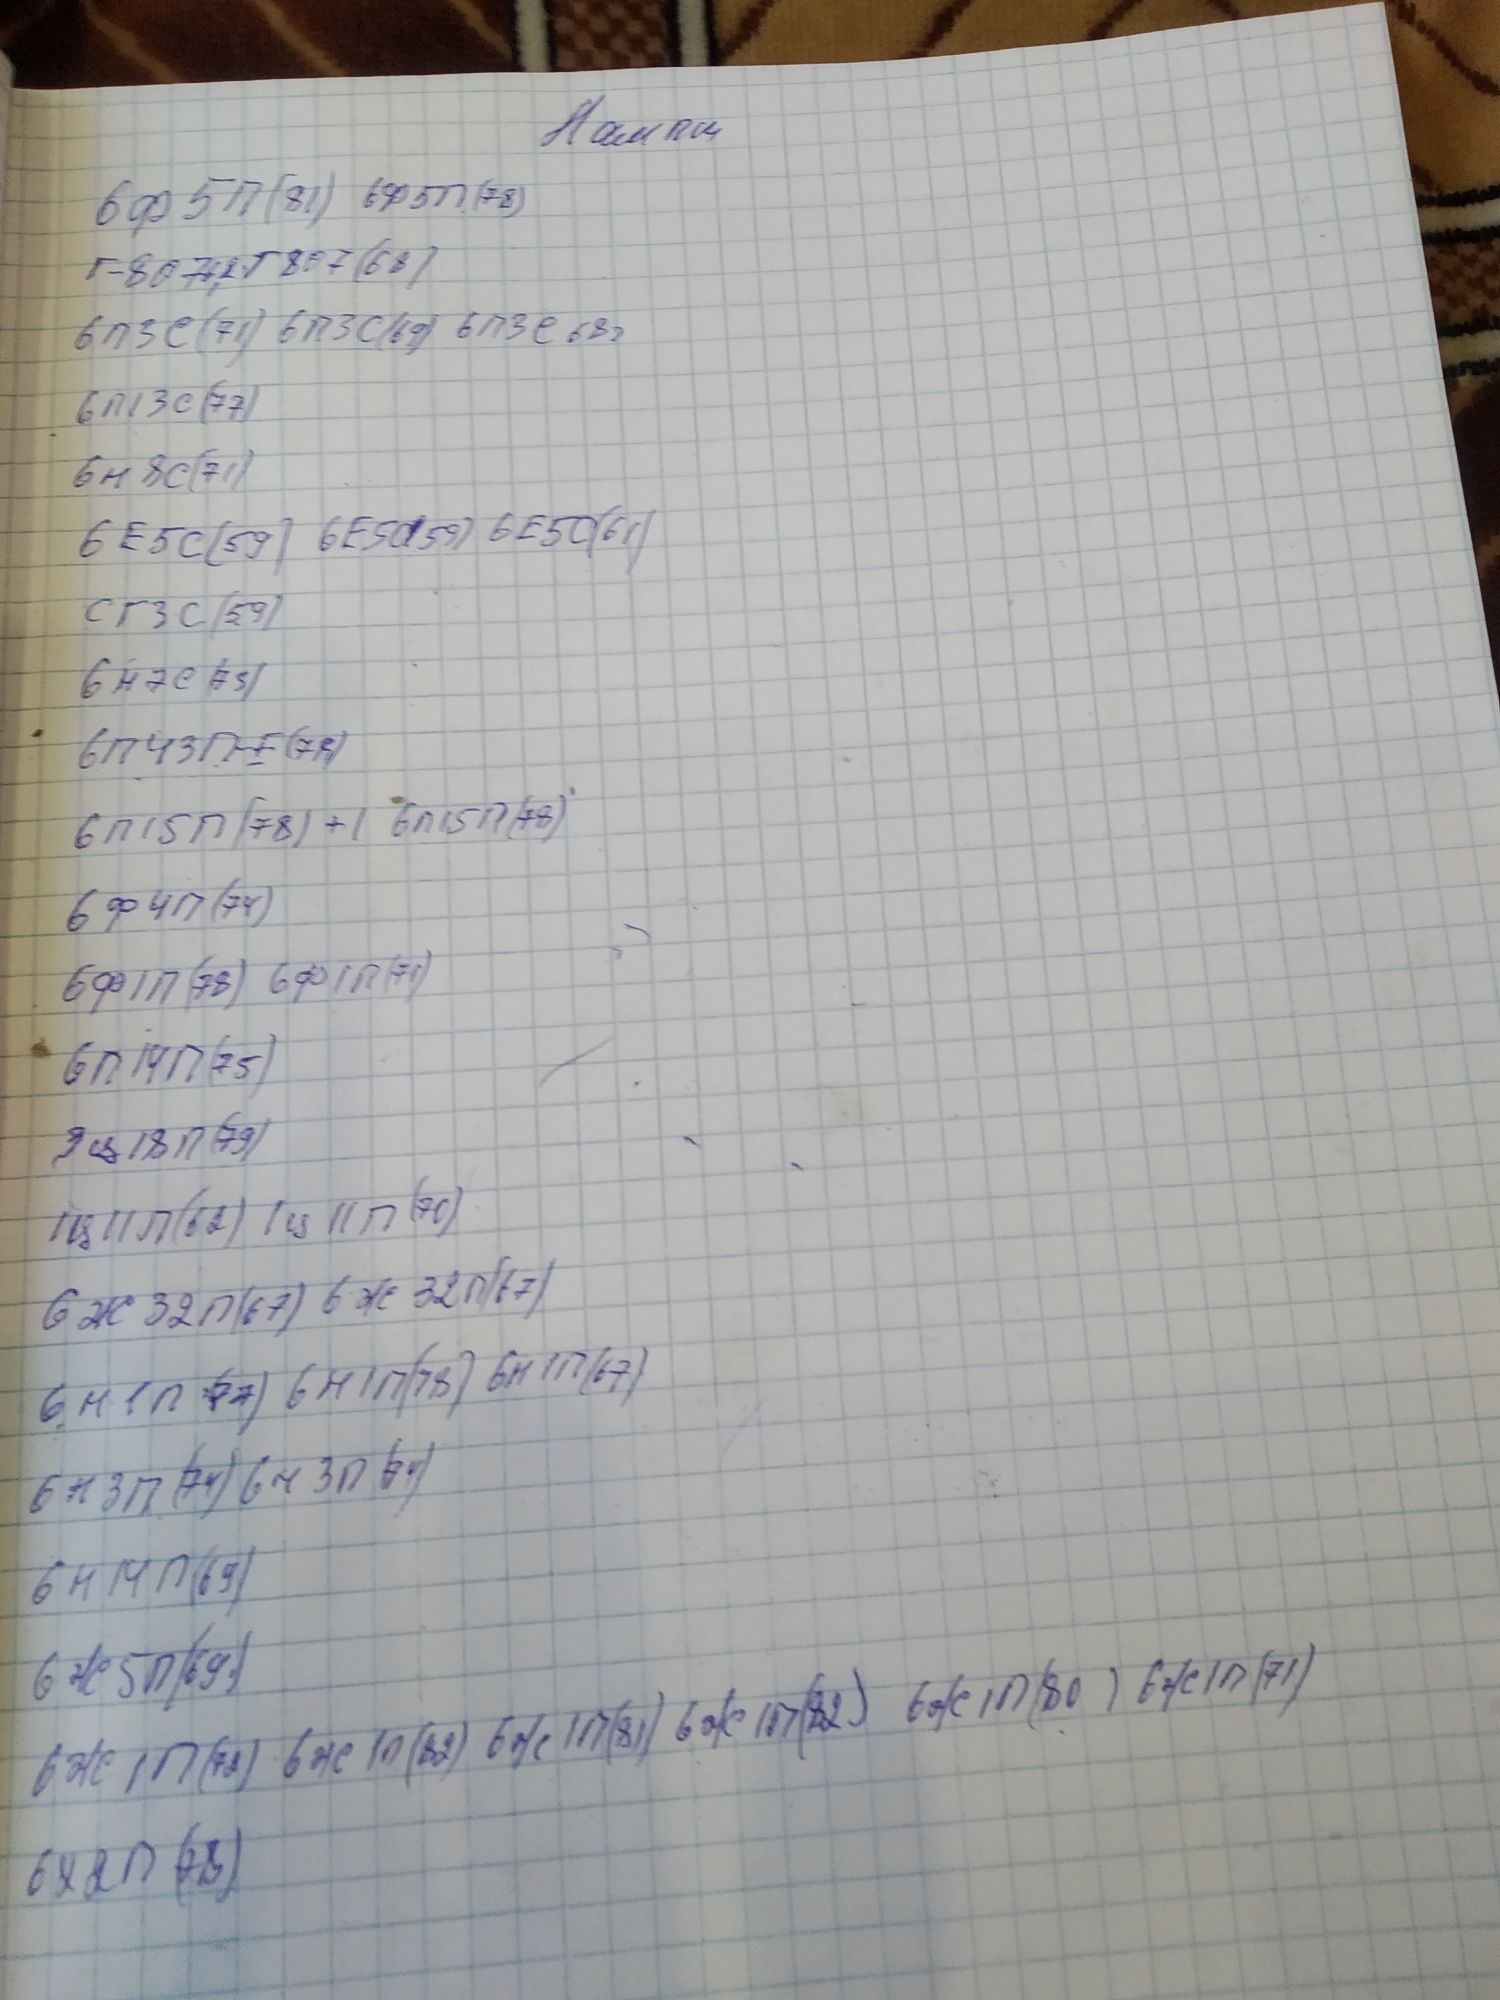 Лампы
6Ф5П(81) 6Ф5П(78)
Г-807 Г807(68)
6П3С(71) 6П3С(69) 6П3С
6П13С(77)
6Н8С(71)
6Е5С(59) 6Е5С(59) 6Е5С(61)
СГ3С(59)
6Н7С(73)
6П43П-Е(78)
6П15П(78)+1 6П15П(78)
6Ф4П(74)
6Ф1П(78) 6Ф1П(71)
6П14П(75)
ц18П(79)
1ц11П(62) 1ц11П(70)
6Ж32П(67) 6Ж32П(67)
6Н1П(77) 6Н1П(78) 6Н1П(67)
6Н3П(74) 6Н3П(74)
6Н14П(69)
6Ж5П(69)
6Ж1П(78) 6Ж1П(82) 6Ж1П(81) 6Ж1П(82) 6Ж1П(80) 6Ж1П(71)
6Х2П(78)